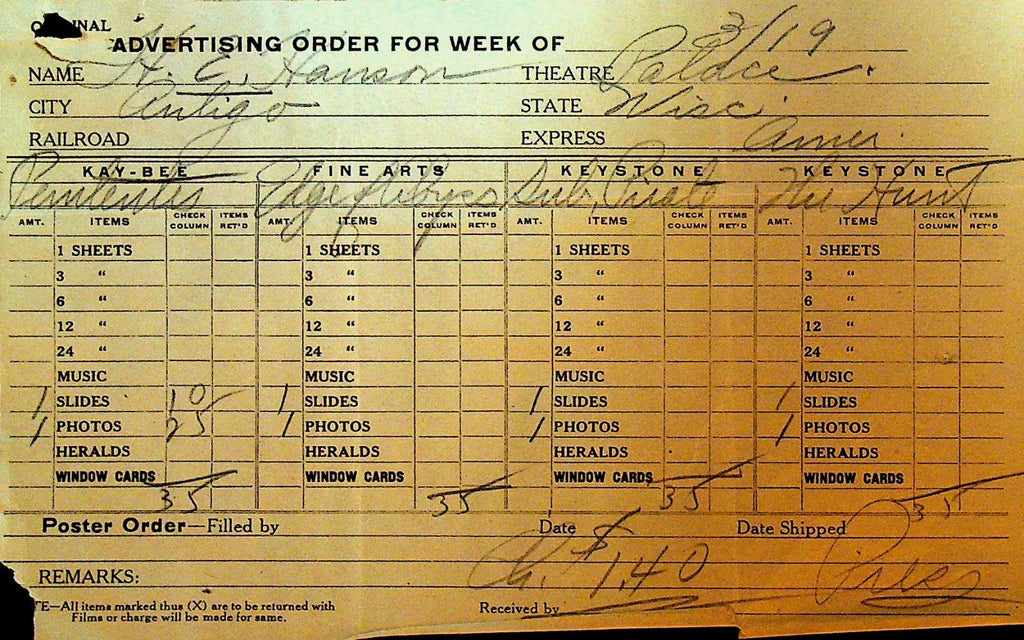 ORIGINAL
ADVERTISING ORDER FOR WEEK OF 3/19
NAME H. E. Hanson THEATRE Palace.
CITY Antigo STATE Wisc.
RAILROAD EXPRESS Amer.
KAY-BEE FINE ARTS KEYSTONE KEYSTONE
Edge of Abyss Sub. Pirate The Hunt
AMT. ITEMS CHECK COLUMN ITEMS RET'D AMT. ITEMS CHECK COLUMN ITEMS RET'D AMT. ITEMS CHECK COLUMN ITEMS RET'D AMT. ITEMS CHECK COLUMN ITEMS RET'D
1 SHEETS 1 SHEETS 1 SHEETS 1 SHEETS
3 “ 3 “ 3 “ 3 “
6 “ 6 “ 6 “ 6 “
12 “ 12 “ 12 “ 12 “
24 “ 24 “ 24 “ 24 “
MUSIC MUSIC MUSIC MUSIC
1 SLIDES 10 1 SLIDES 1 SLIDES 1 SLIDES
1 PHOTOS 25 1 PHOTOS 1 PHOTOS 1 PHOTOS
HERALDS HERALDS HERALDS HERALDS
WINDOW CARDS WINDOW CARDS WINDOW CARDS WINDOW CARDS
35 35 35 35
Poster Order—Filled by Date Date Shipped
$1.40
REMARKS:
TE—All items marked thus (X) are to be returned with
Films or charge will be made for same.
Received by